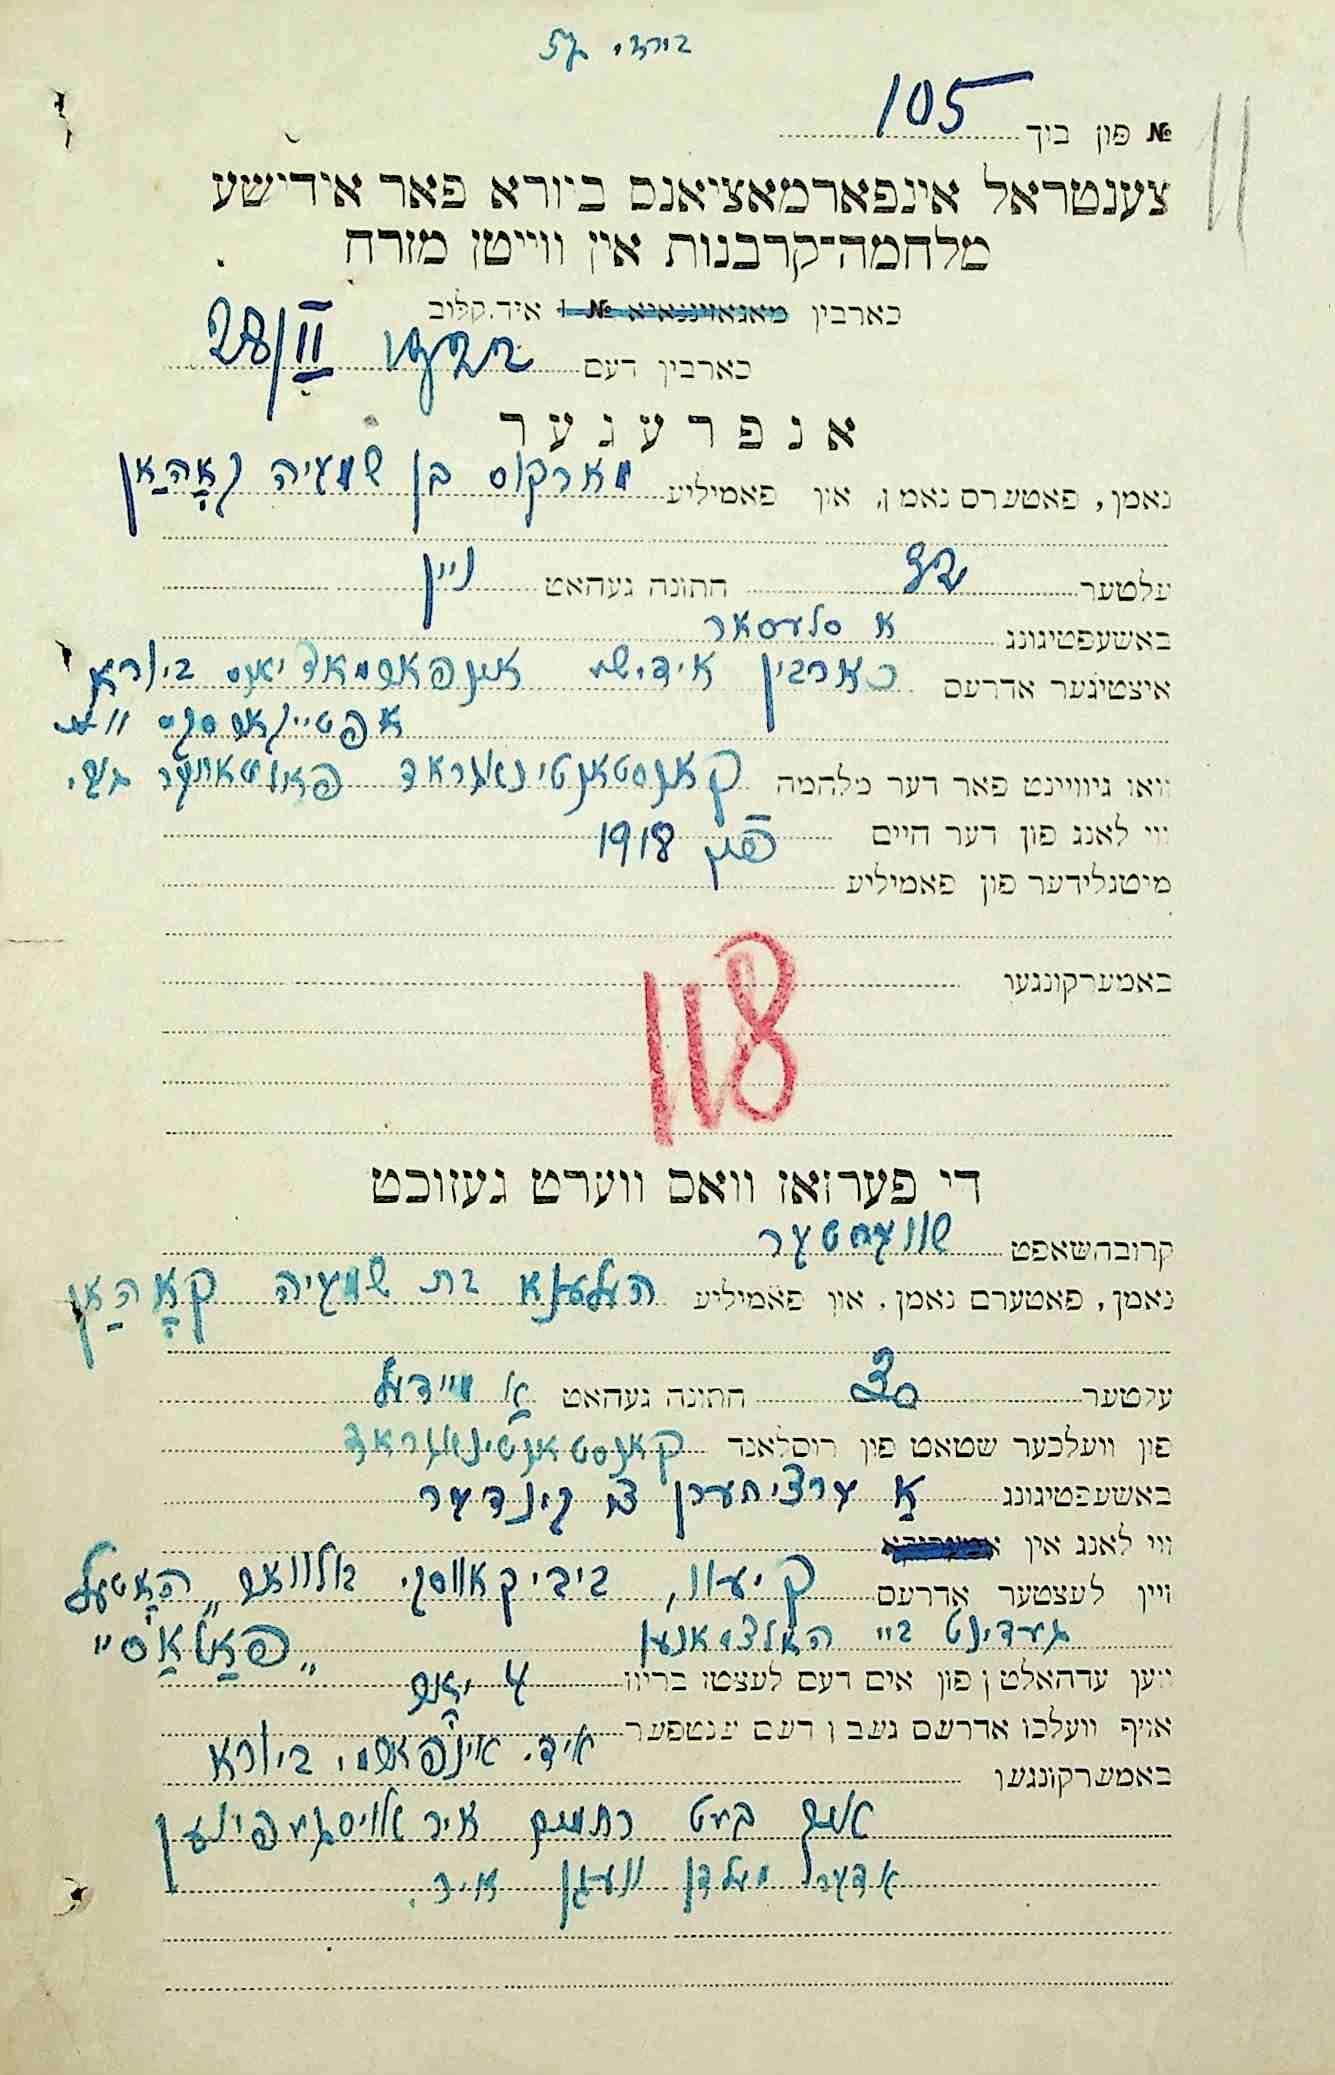 105
11
№ פון בוך
צענטראל אינפארמאציאנס ביורא פאר אידישע
מלחמה־קרבנות אין ווייטן מזרח
כארבין מאגאזיננאיא № 1 איד.קלוב
כארבין דעם 28/II
אנפרעגער
נאמן, פאטערס נאמן, און פאמיליע מארקוס בן שמעיה קאָהאַן
עלטער חתונה געהאט ניין
באשעפטיגונג א סלעסאר
איצטיגער אדרעס כארבין אידישע אינפארמאציאנס ביורא
וואו געוויינט פאר דער מלחמה קאנסטאנטינאגראד פאלטאווער גוב.
ווי לאנג פון דער היים פון 1918
מיטגלידער פון פאמיליע
באמערקונגען
118
די פערזאן וואס ווערט געזוכט
קרובהשאפט שוועסטער
נאמן, פאטערס נאמן, און פאמיליע העלענא בת שמעיה קאָהאַן
עלטער חתונה געהאט אַ מיידעל
פון וועלכער שטאט פון רוסלאנד קאנסטאנטינאגראד
באשעפטיגונג אַ ערציהערן צו קינדער
ווי לאנג אין
זיין לעצטער אדרעס קיעוו, ביביקאווסקי בולוואר „האָטעל
געדינט ביי האלצמאנען „פּאַלאַס"
ווען ערהאלטן פון אים דעם לעצטן בריוו 4 יאָר
אויף וועלכן אדרעס געבן דעם ענטפער איד. אינפארמ. ביורא
באמערקונגען
איך בעט רחמים איר אויסגעפינען
אדער מעלדן וועגן איר.